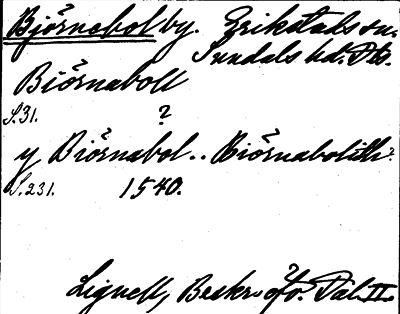 Björnebol by. Erikstads sn.
Sundals hd. Dls.
Biörnaboll
S.31. ?
y Biörnabol.. Biörnabolith?
S.231. 1540.
Lignell, Beskr. öfv. Dal II.